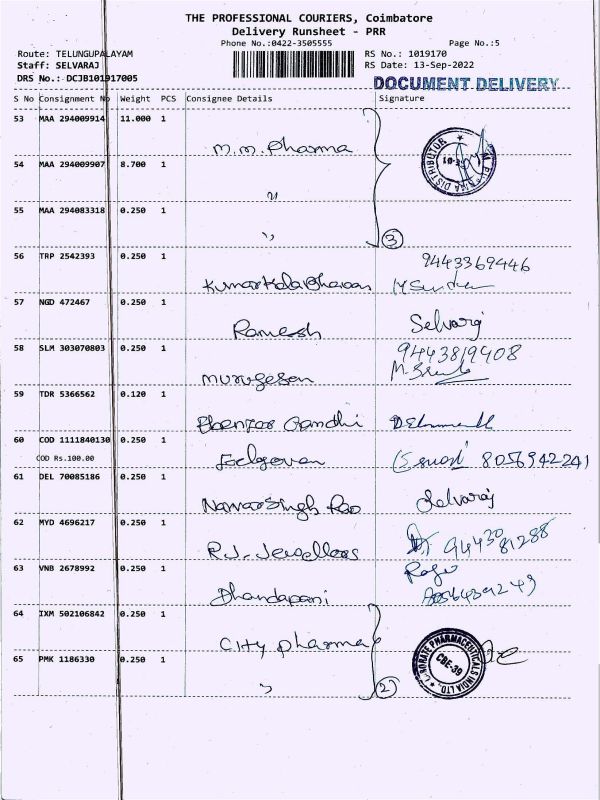 THE PROFESSIONAL COURIERS, Coimbatore
Delivery Runsheet - PRR
Phone No.:0422-3505555 Page No.:5
Route: TELUNGUPALAYAM RS No.: 1019170
Staff: SELVARAJ RS Date: 13-Sep-2022
DRS No.: DCJB101917005 DOCUMENT DELIVERY
S No Consignment No Weight PCS Consignee Details Signature
53 MAA 294009914 11.000 1
M.M. Pharma
54 MAA 294009907 8.700 1
"
55 MAA 294083318 0.250 1
" 3
56 TRP 2542393 0.250 1 9443369446
57 NGD 472467 0.250 1
Ramesh Selvaraj
58 SLM 303070803 0.250 1 9443819408
Murugesan
59 TDR 5366562 0.120 1
Gandhi
60 COD 1111840130 0.250 1
COD Rs.100.00 8056942241
61 DEL 70085186 0.250 1
Nawar Singh Rao Selvaraj
62 MYD 4696217 0.250 1
R.J. Jewellers 9443081288
63 VNB 2678992 0.250 1 Raju
Dhandapani
64 IXM 502106842 0.250 1
City pharma
65 PMK 1186330 0.250 1 PHARMACEUTICALS INDIA LTD. CBE-39
" 2